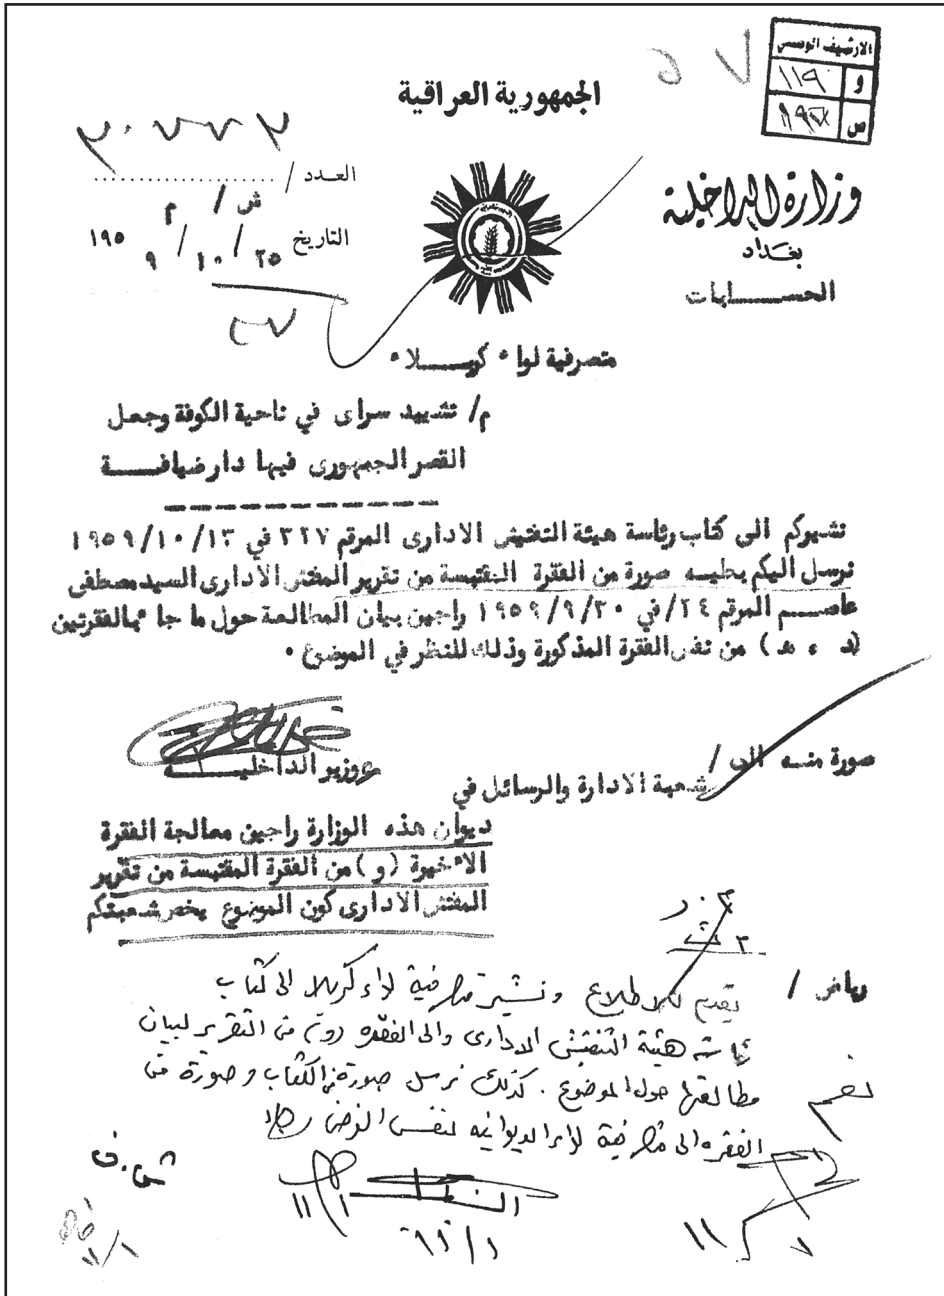 الارشيف الوسمي
و ١١٩٠
س
الجمهورية العراقية
وزارة الداخلية
بغداد
الحســـابات
العدد /
ش / م
التاريخ ٢٥ / ١٠ / ١٩٥٩
متصرفية لواء كربـــلاء
م/ تشييد سراى في ناحية الكوفة وجعل
القصر الجمهورى فيها دار ضيافـــة
نشيركم الى كتاب رئاسة هيئة التفتيش الادارى المرقم ٣٢٧ في ١٩٥٩/١٠/١٣
نرسل اليكم بطيـه صورة من الفقرة المقتبسة من تقرير المفتش الادارى السيد مصطفى
عاصـــم المرقم ٢٤/ في ١٩٥٩/٩/٢٠ راجين بيان المطالعة حول ما جاء بالفقرتين
(د ، هـ ) من نفس الفقرة المذكورة وذلك للنظر في الموضوع •
وزير الداخليـــة
صورة منـه الى /
شعبة الادارة والرسائل في
ديوان هذه الوزارة راجين معالجة الفقرة
الاخيرة (و) من الفقرة المقتبسة من تقرير
المفتش الادارى كون الموضوع يخص شعبتكم
رياض /
يقدم للاطلاع ونشير متصرفية لواء كربلاء الى كتاب
رئاسة هيئة التفتيش الادارى والى الفقره من التقرير لبيان
مطالعتها حول الموضوع . كذلك نرسل صورة من الكتاب وصورة من
الفقره الى متصرفية لواء الديوانيه لنفس الغرض
١١/١
١١/١